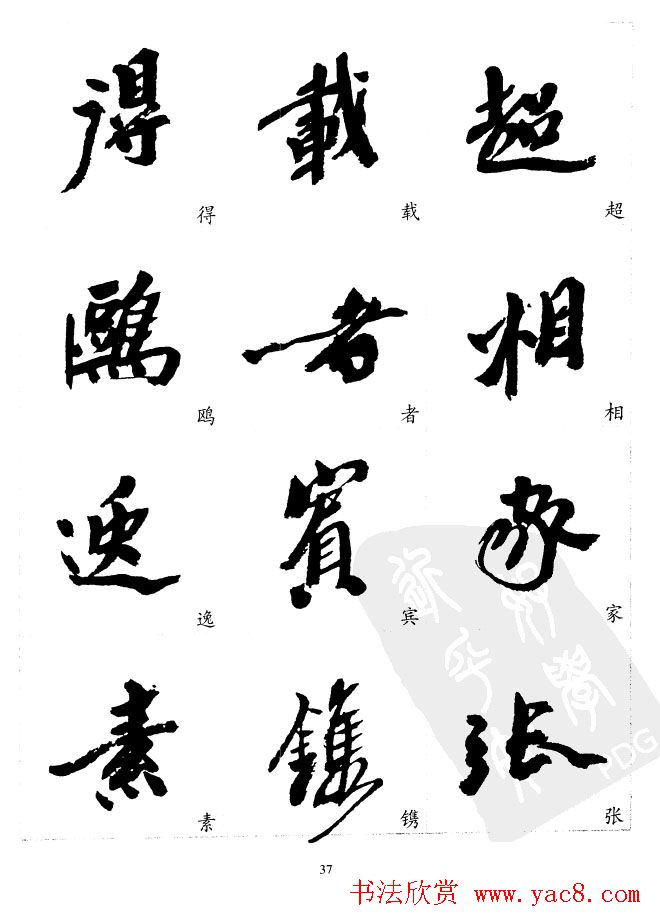 得 載 超
得 载 超
鷗 者 相
鸥 者 相
逸 賓 家
逸 宾 家
素 鐫 張
素 镌 张
PDG
37
书法欣赏 www.yac8.com